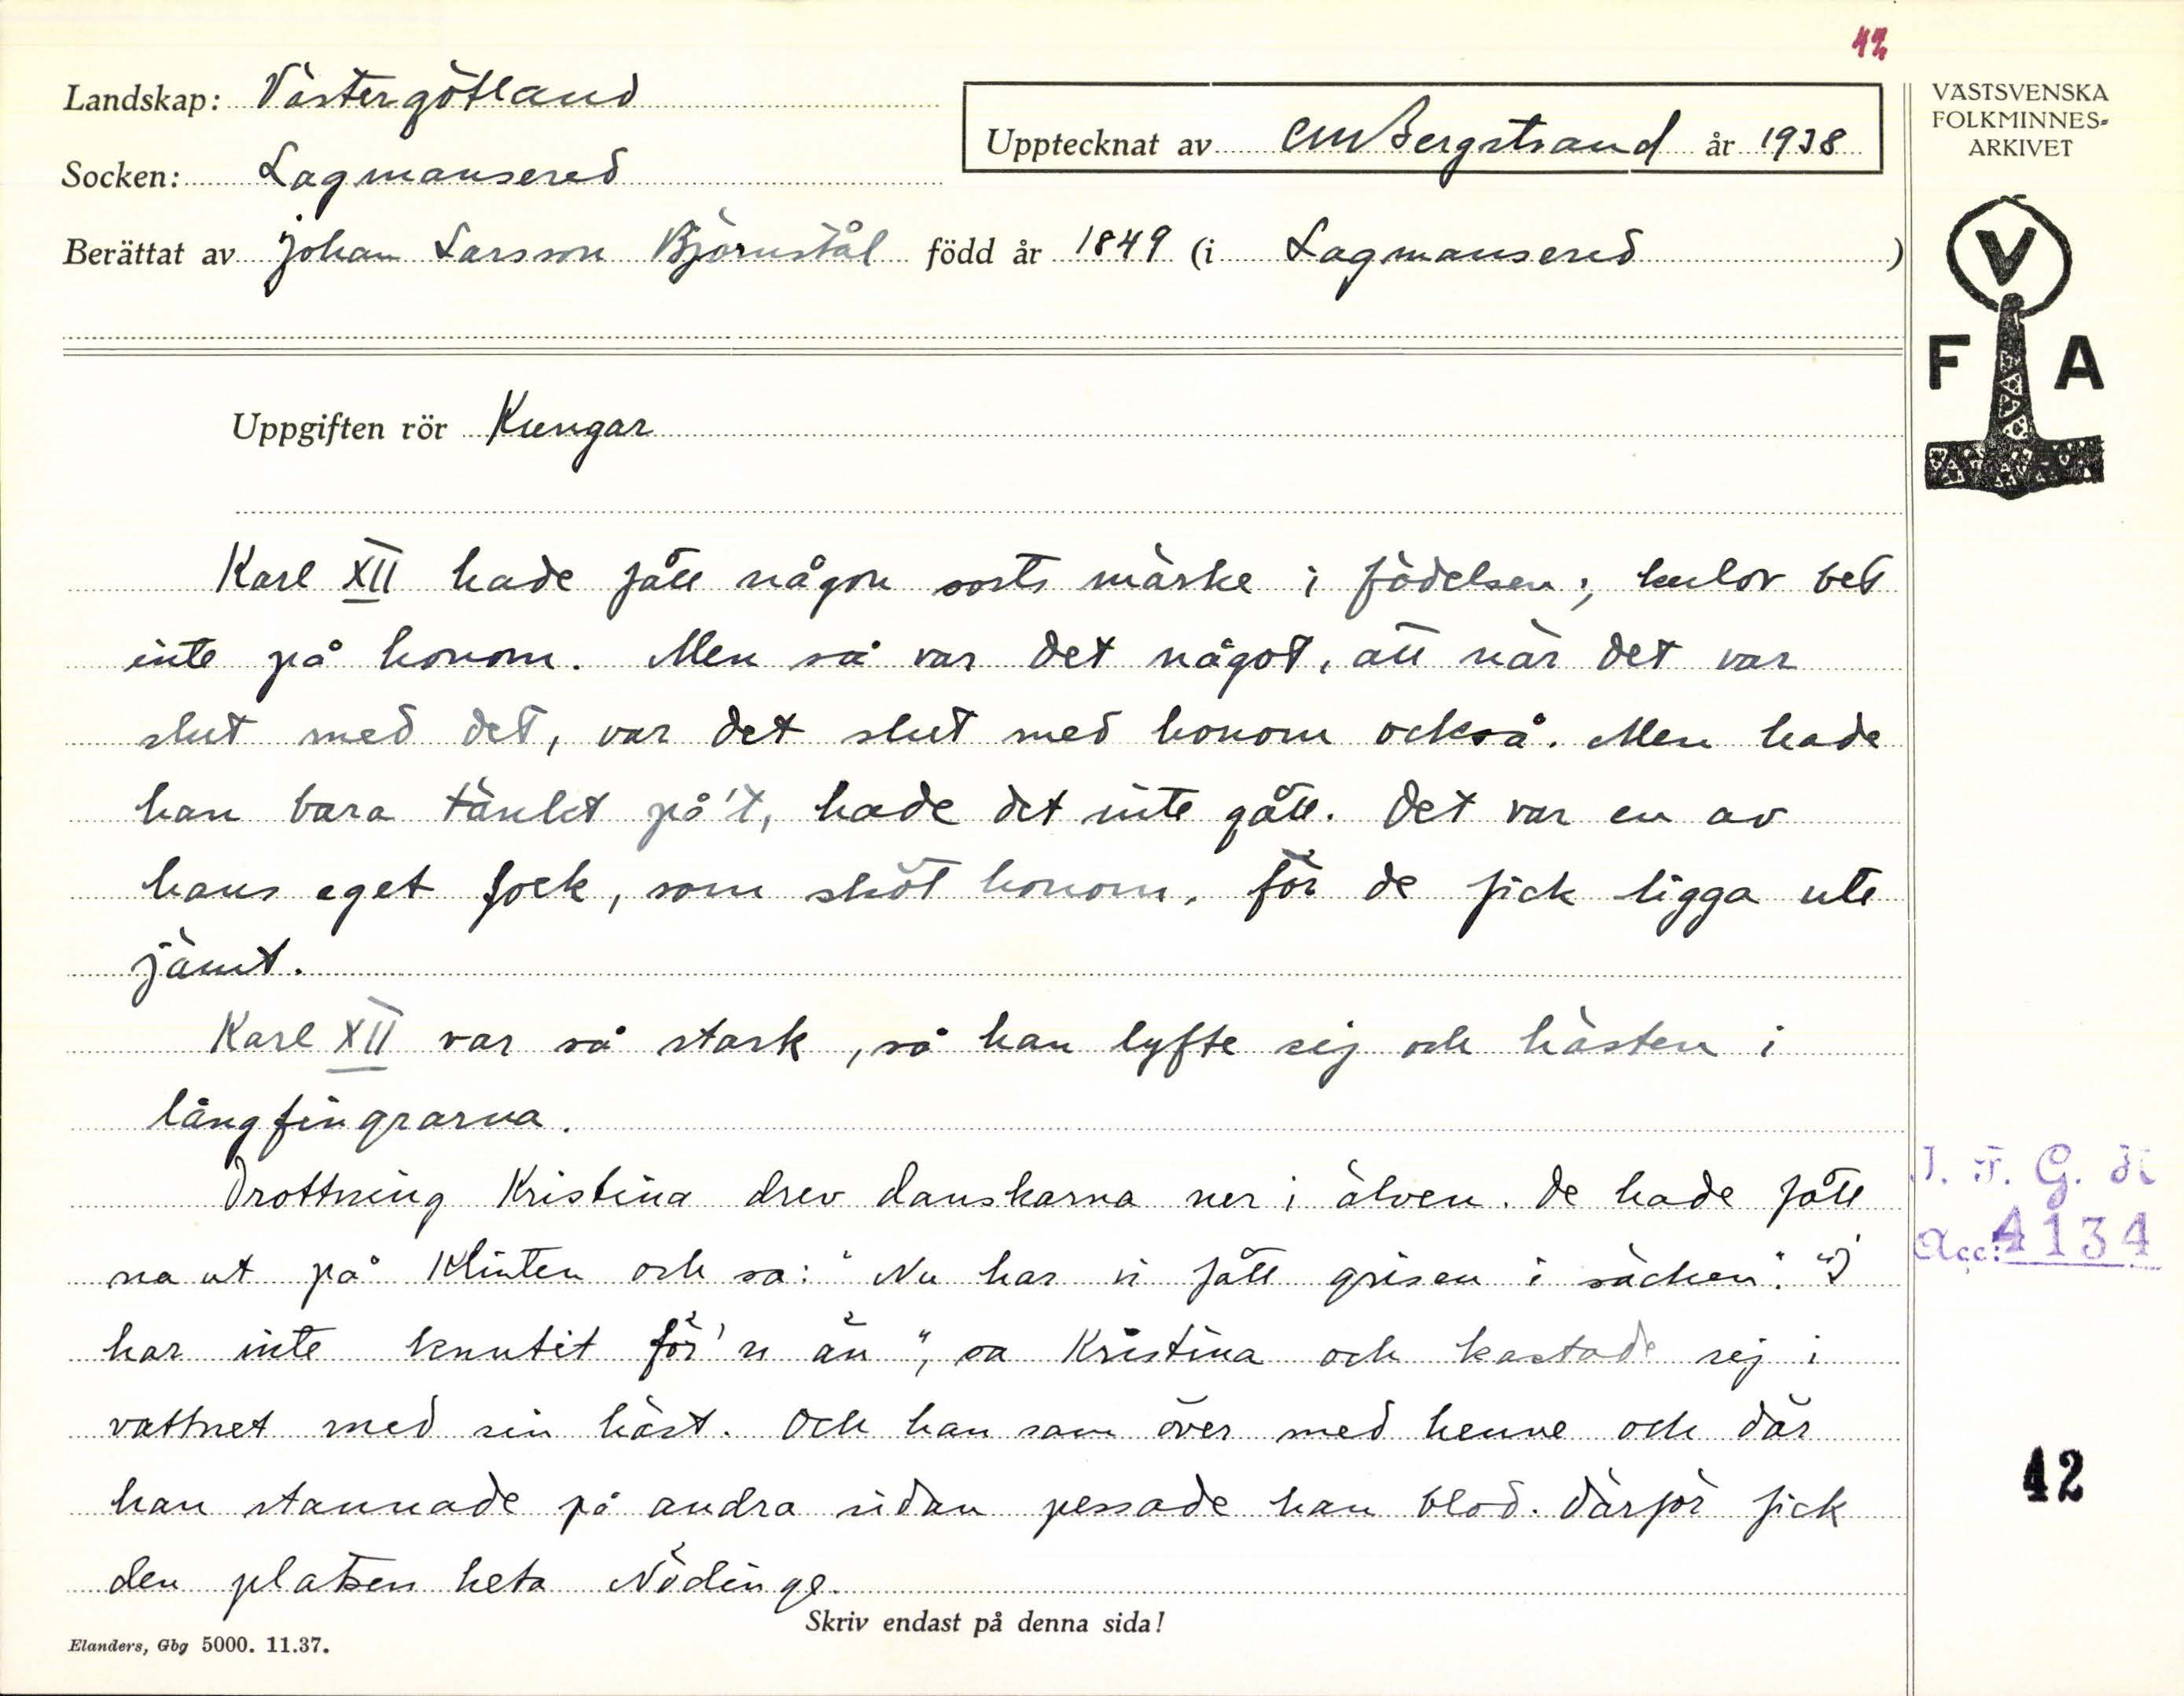 42
Landskap: Västergötland
Upptecknat av CM Bergstrand år 1938
VÄSTSVENSKA
FOLKMINNES-
ARKIVET
Socken: Lagmansered
Berättat av Johan Larsson Björnstål född år 1849 (i Lagmansered)
V
F A
Uppgiften rör Kungar
Karl XII hade fått någon sorts märke i födelsen; kulor bet
inte på honom. Men så var det något, att när det var
slut med det, var det slut med honom också. Men hade
han bara tänkt på't, hade det inte gått. Det var en av
hans eget folk, som sköt honom, för de fick ligga ute
jämt.
Karl XII var så stark, så han lyfte sig och hästen i
långfingrarna.
Drottning Kristina drev danskarna ner i älven. De hade fått
na ut på Klinten och sa: "Nu har vi fått grisen i säcken". "I
har inte knutit för'n än", sa Kristina och kastade sej i
vattnet med sin häst. Och han sam över med henne och där
han stannade på andra sidan pessade han blod. Därför fick
den platsen heta Nödinge.
I. F. G. H
Acc: 4134
42
Skriv endast på denna sida!
Elanders, Gbg 5000. 11.37.